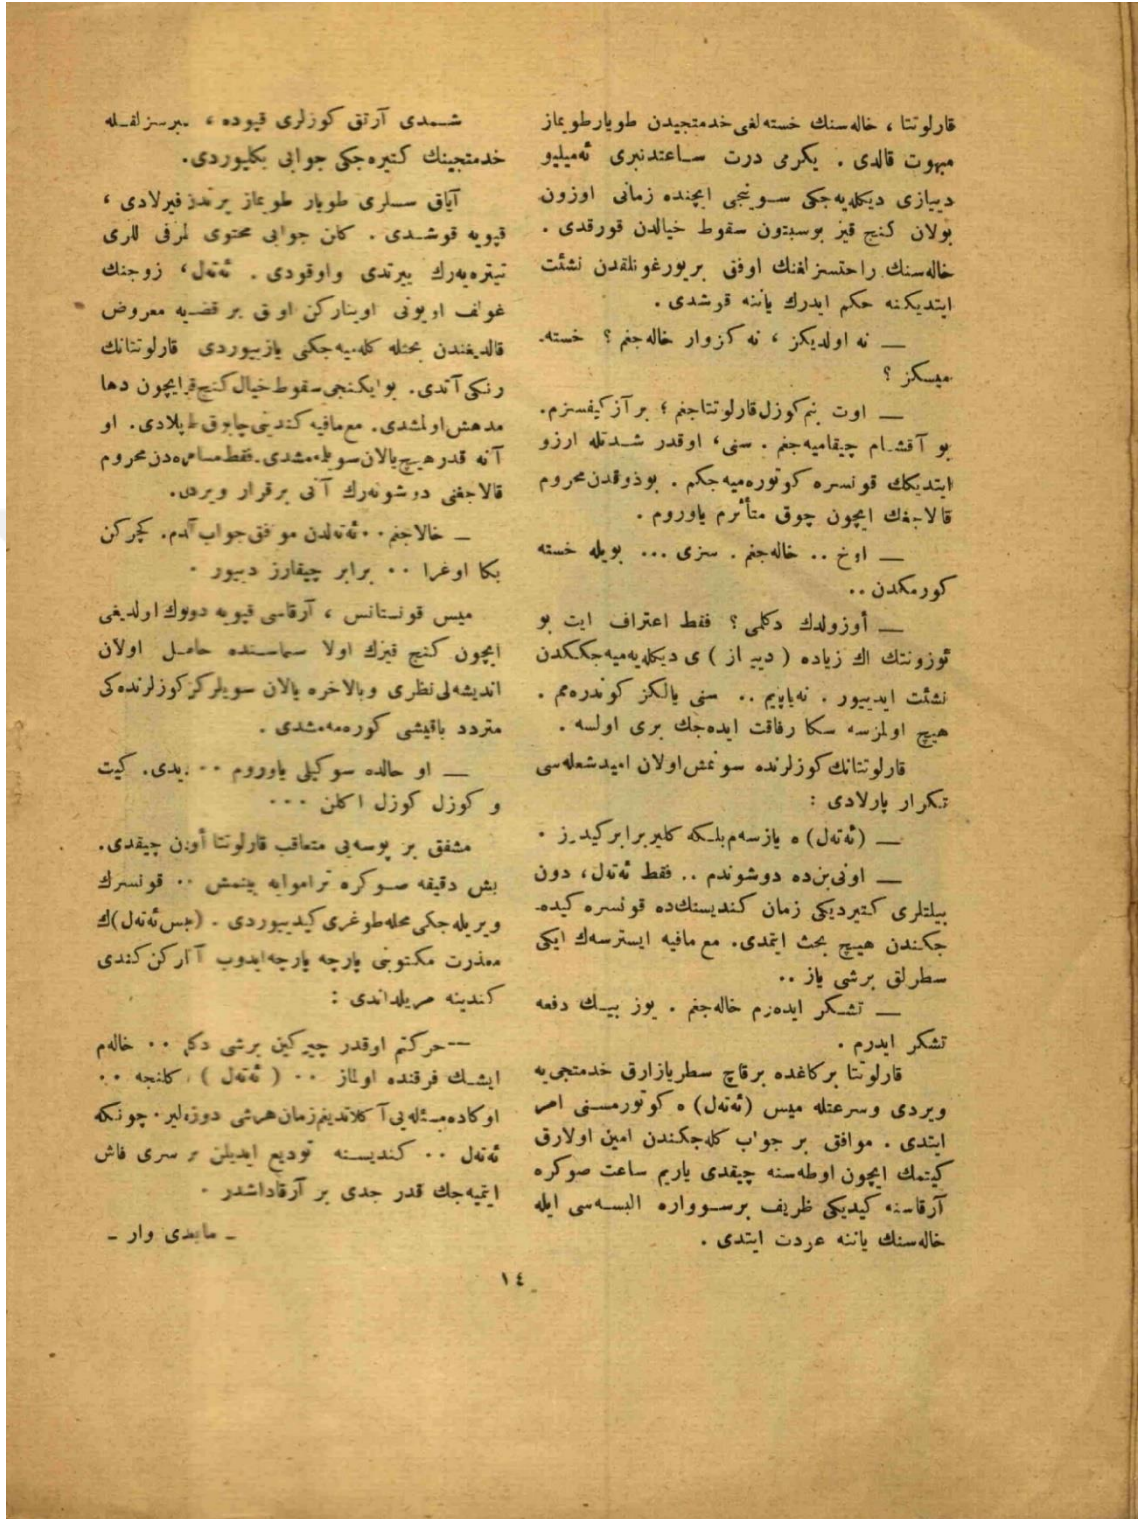 قارلوتتا ، خاله‌سنك خسته لغی خدمتجیدن طویارطویماز
مبهوت قالدی . یکرمی درت ساعتدنبری ئه‌میلیو
دییازی دیکله‌یه‌جکی سوینجی ایچنده زمانی اوزون
بولان کنج قیز بوسبتون سقوط خیالدن قورقدی .
خاله‌سنك راحتسزلغنك اوفق بر یورغونلقدن نشئت
ایتدیکنه حکم ایدرك یاننه قوشدی .
— نه اولدیکز ، نه کزوار خاله‌جغم ؟ خسته‌
میسکز ؟
— اوت بنم کوزل قارلوتتاجغم ؛ بر آز کیفسزم.
بو آقشام چیقامیه‌جغم . سنی، اوقدر شدتله ارزو
ایتدیکك قونسره کوتوره‌میه‌جکم . بوذوقدن محروم
قالاجغك ایچون چوق متأثرم یاوروم .
— اوخ .. خاله‌جغم . سزی ... بویله خسته
کورمکدن ..
— أوزولدك دکلمی ؟ فقط اعتراف ایت بو
ئوزونتك اك زیاده ( دییاز ) ی دیکله‌یه‌میه‌جککدن
نشئت ایدییور . نه‌یاپیم .. سنی یالکز کوندره‌مم .
هیچ اولمزسه سکا رفاقت ایده‌جك بری اولسه .
قارلوتتانك کوزلرنده سونمش اولان امید شعله‌سی
تکرار پارلادی :
— (ئه‌ته‌ل) ه یازسه‌م بلکه کلیر برابر کیدرز .
— اونی بن‌ده دوشوندم .. فقط ئه‌ته‌ل، دون
بیلتلری کتیردیکی زمان کندیسنك‌ده قونسره کیده‌
جکندن هیچ بحث ایتمدی. مع مافیه ایسترسه‌ك ایکی
سطرلق برشی یاز ..
— تشکر ایده‌رم خاله‌جغم . یوز بیك دفعه
تشکر ایدرم .
قارلوتتا برکاغده برقاچ سطر یازارق خدمتجی‌یه
ویردی وسرعتله میس (ئه‌ته‌ل) ه کوتورمسنی امر
ایتدی . موافق بر جواب کله‌جکندن امین اولارق
کیتمك ایچون اوطه‌سنه چیقدی یاریم ساعت صوکره
آرقاسنه کیدیکی ظریف برسوواره البسه‌سی ایله
خاله‌سنك یاننه عودت ایتدی .
شمدی آرتق کوزلری قپوده ، صبرسزلقله
خدمتجینك کتیره‌جکی جوابی بکلیوردی.
آیاق سسلری طویار طویماز یرندن فیرلادی ،
قپویه قوشدی . کلن جوابی محتوی ظرفی اللری
تیتره‌یه‌رك ییرتدی واوقودی . ئه‌ته‌ل، زوجنك
غولف اویونی اوینارکن اوفق بر قضایه معروض
قالدیغندن بحثله کله‌میه‌جکی یازییوردی قارلوتتانك
رنکی آتدی. بوایکنجی سقوط خیال کنج قیزایچون دها
مدهش اولمشدی. مع مافیه کندینی چابوق طوپلادی. او
آنه قدر هیچ یالان سویله‌مه‌مشدی. فقط مسامره‌دن محروم
قالاجغنی دوشونه‌رك آنی برقرار ویردی.
— خالاجغم .. ئه‌ته‌لدن موافق جواب آلدم. کچرکن
بکا اوغرا .. برابر چیقارز دییور .
میس قونستانس ، آرقاسی قپویه دونوك اولدیغی
ایچون کنج قیزك اولا سیماسنده حاصل اولان
اندیشه‌لی نظری وبالاخره یالان سویلرکن کوزلرنده‌کی
متردد باقیشی کوره‌مه‌مشدی .
— او حالده سوکیلی یاوروم .. دیدی. کیت
و کوزل کوزل اکلن ...
مشفق بر بوسه‌یی متعاقب قارلوتتا أودن چیقدی.
بش دقیقه صوکره تراموایه بینمش .. قونسرك
ویریله‌جکی محله طوغری کیدییوردی . (میس ئه‌ته‌ل)ك
معذرت مکتوبنی پارچه پارچه ایدوب آتارکن کندی
کندینه میریلداندی :
— حرکتم اوقدر چیرکین برشی دکل .. خاله‌م
ایشك فرقنده اولماز .. ( ئه‌ته‌ل ) کلنجه ..
اوکاده مسئله‌یی آکلاتدیغم زمان هرشی دوزه‌لیر . چونکه
ئه‌ته‌ل .. کندیسنه تودیع ایدیلن بر سری فاش
ایتمیه‌جك قدر جدی بر آرقاداشدر .
ـ مابعدی وار ـ
١٤